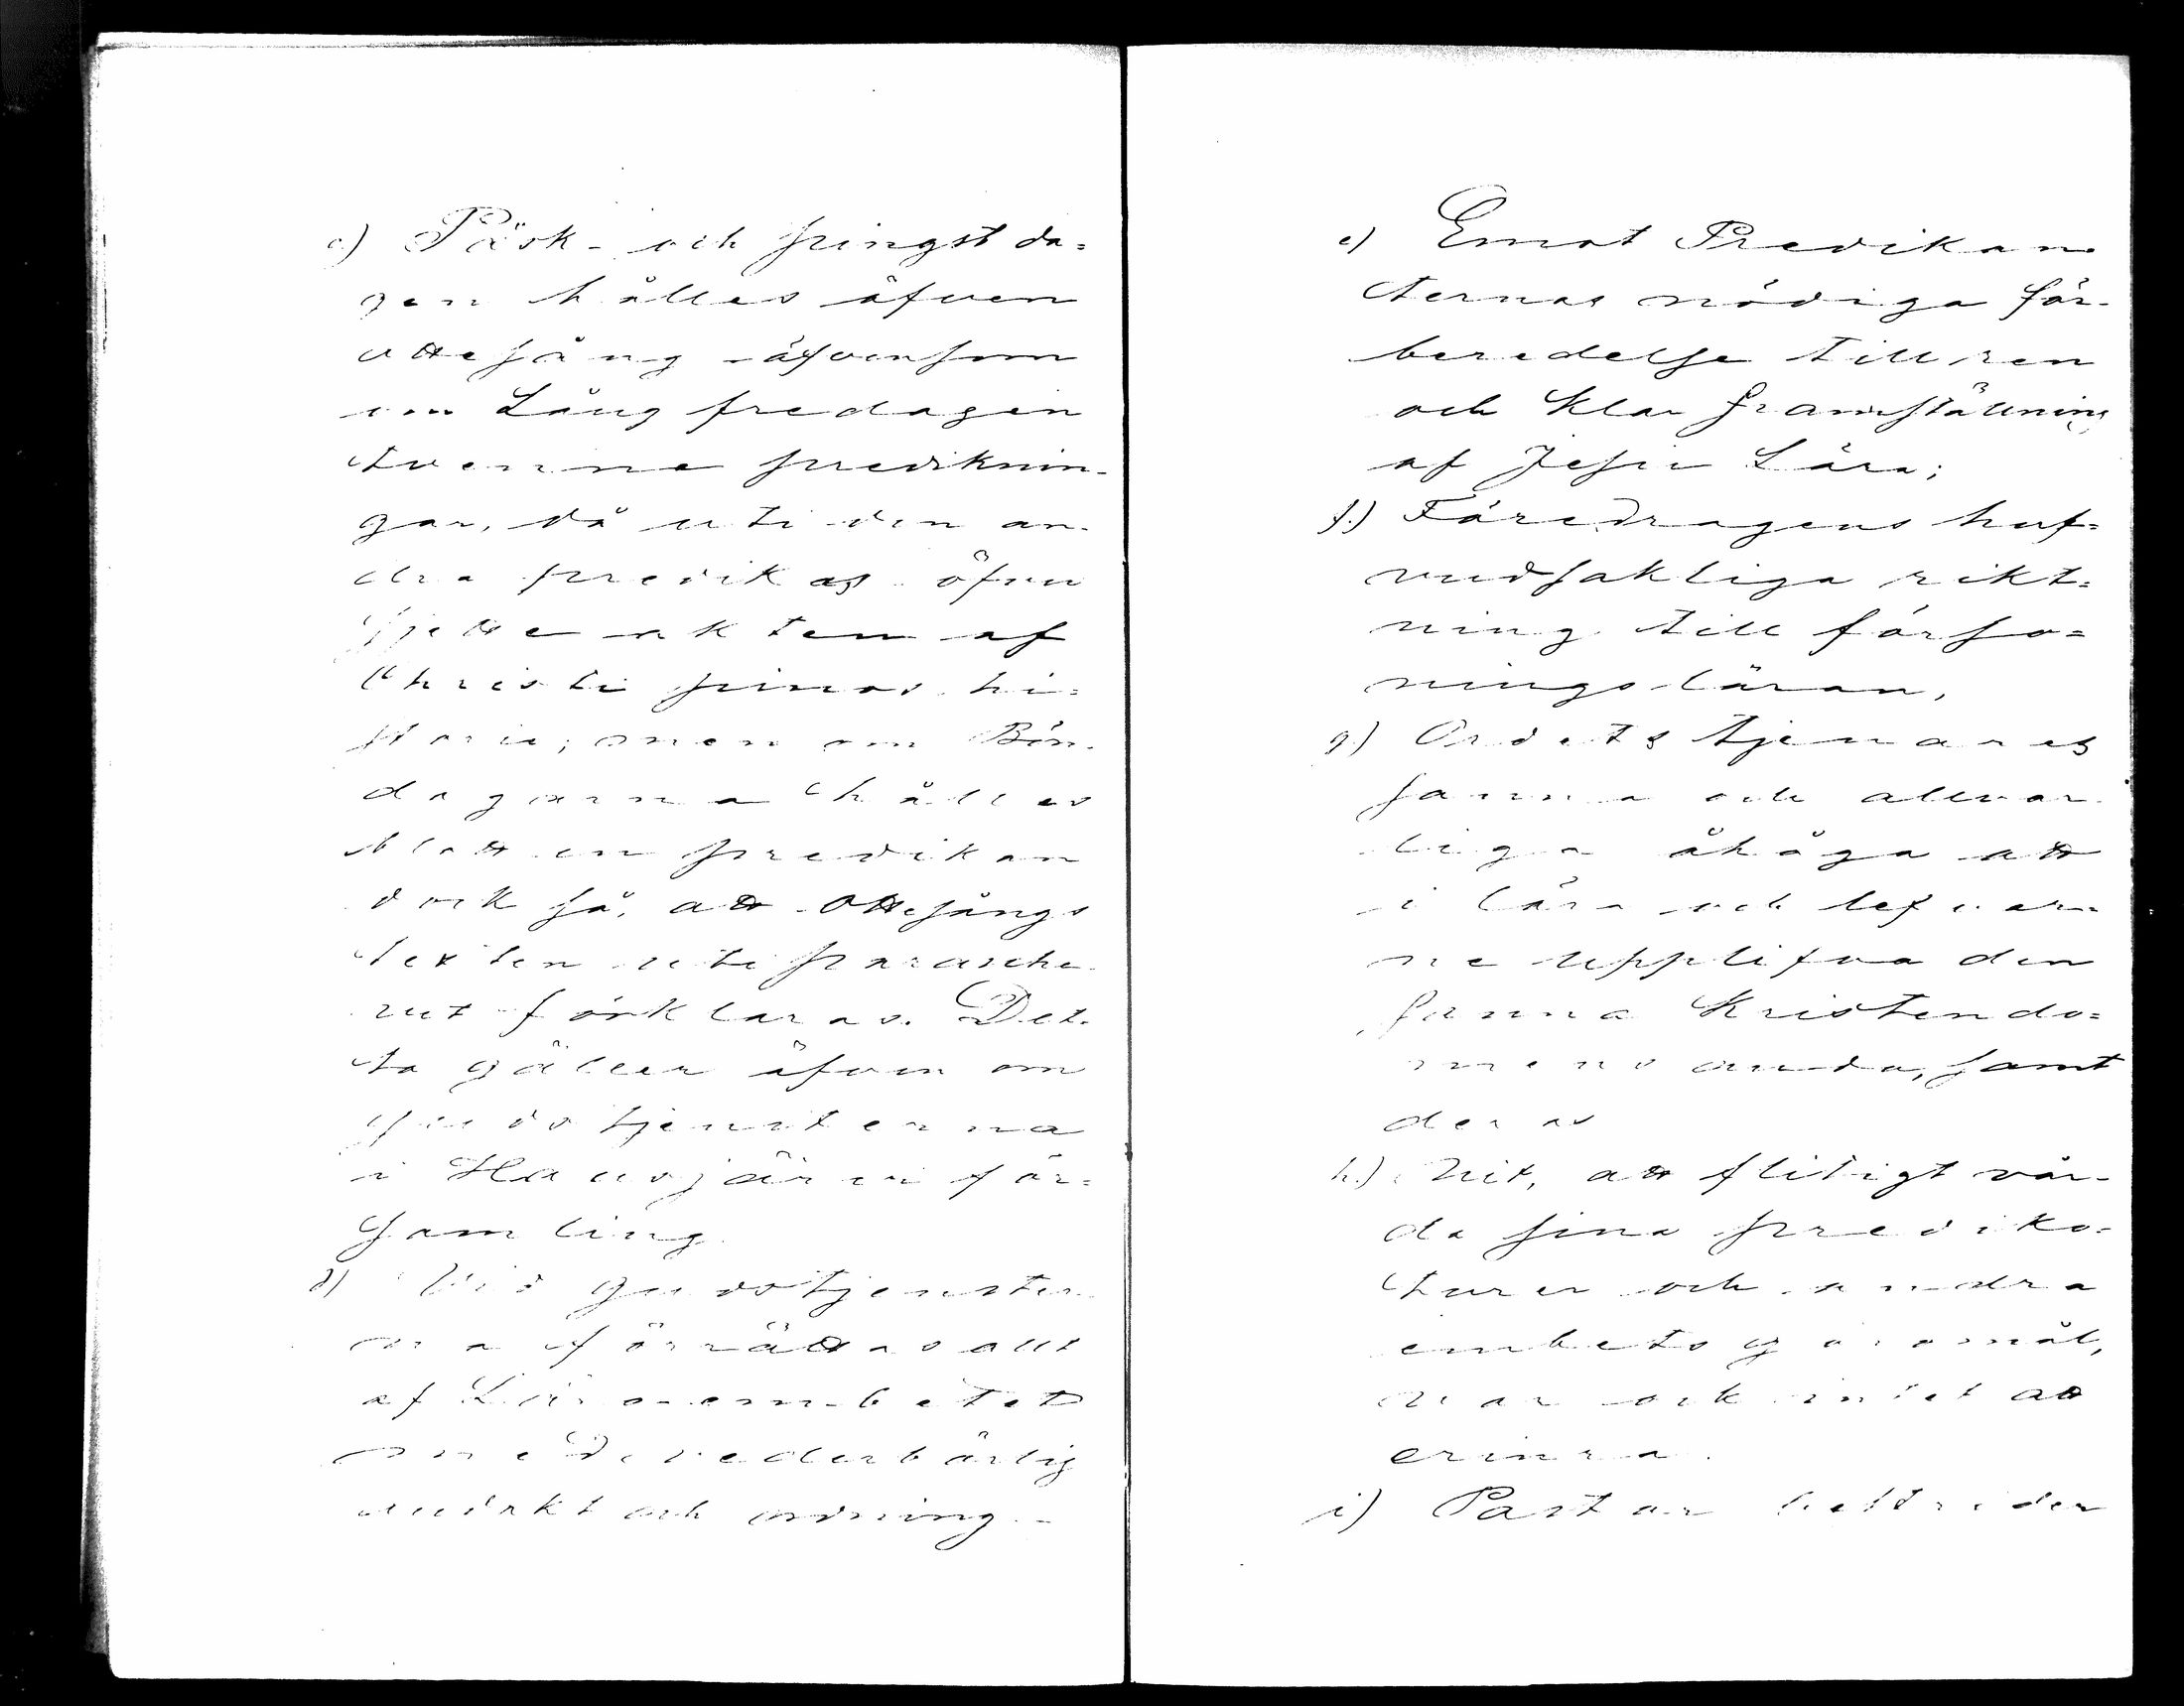 c) Påsk- och pingstda=
gen hålles äfven
ottesång äfvensom
om Långfredagen
tvenne prediknin-
gar, då uti den an-
dra predikas öfver
sjette akten af
Christi pinos hi=
storia; men om Bön-
dagarna hålles
blott en predikan
dock så, att ottesångs
texten uti
förklaras. Det-
ta gäller äfven om
gudstjensterna
i Hausjärvi för=
samling.
d) Vid gudstjenster-
na förrättas allt
af Läroembetet
med vederbörlig
andakt och ordning.-
e) Emot Predikan
ternas nödiga för-
beredelse till ren
och klar framställning
af Jesu Lära;
f.) Föredragens huf=
vudsakliga rikt=
ning till förso=
ningsläran,
g.) Ordets tjenares
sanna och allvar-
liga åhåga att
i lära och lefver-
ne upplifva den
sanna Kristendo=
mens anda, samt
deras
h.) Nit, att flitigt vår-
da sina prediko=
turer och andra
embetsgöromål,
var ock intet att
erinra.
i) Pastor